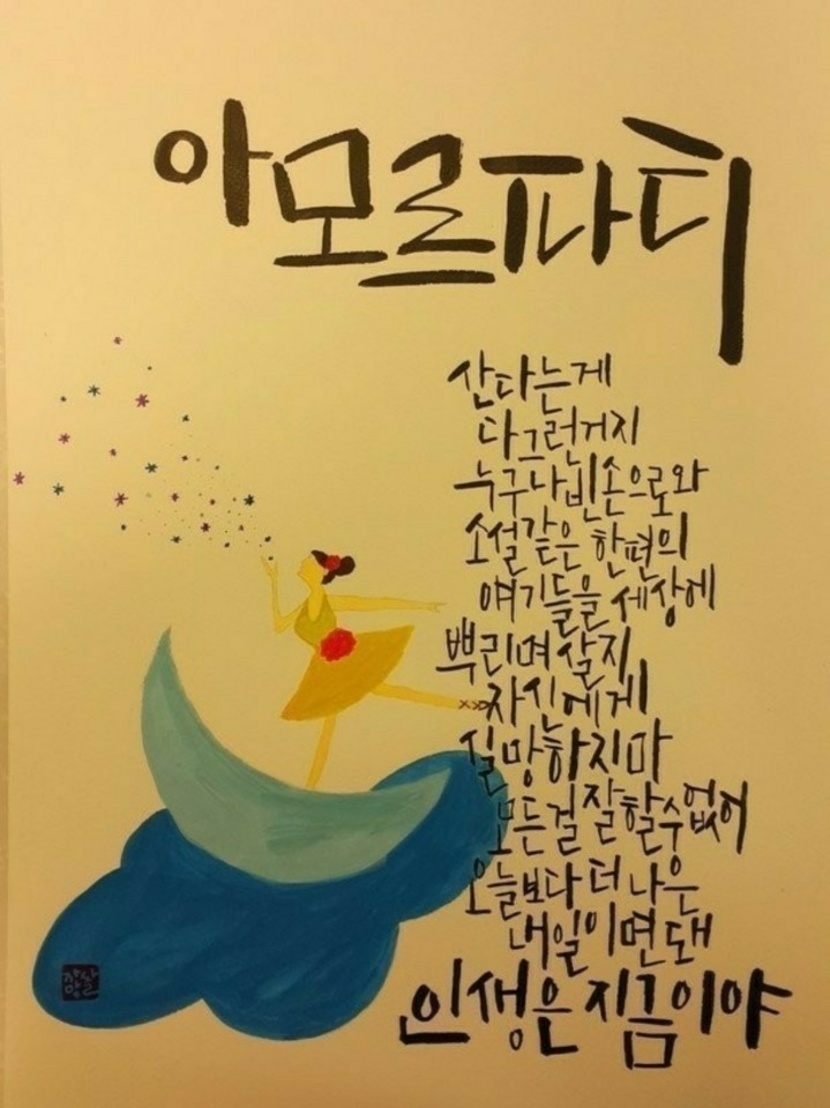 아모르파티
산다는게
다그런거지
누구나빈손으로와
소설같은 한편의
얘기들을 세상에
뿌리며살지
자신에게
실망하지마
모든걸잘할수없어
오늘보다 더 나은
내일이면돼
인생은 지금이야